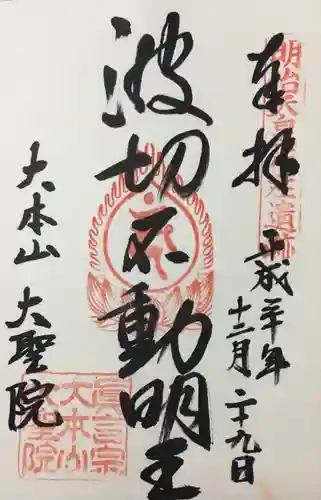 奉拝
明治天皇
遺跡
平成二十年
十二月二十九日
波切不動明王
大本山 大聖院
眞言宗
大本山
大聖院